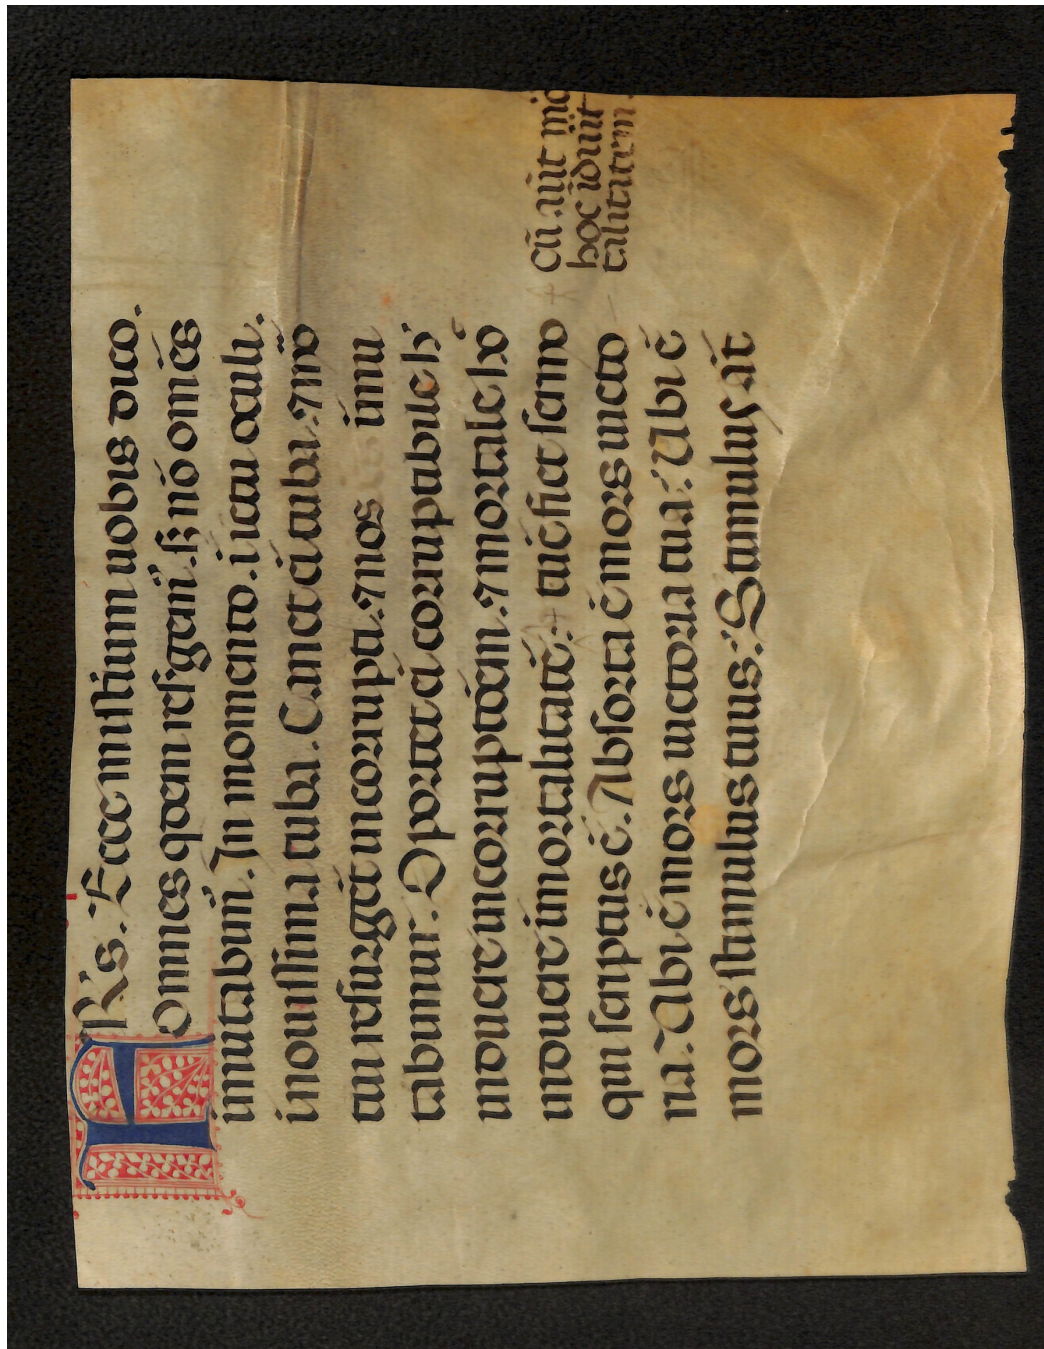 FRs. Ecce misterium uobis dico.
Omnes qdem resurgem̃. sʒ nõ omẽs
imutabim̃. In momento. i ictu oculi.
i nouissima tuba. Canet .n. tuba. ⁊ mo
tui resurgẽt incorrupti. ⁊ nos imu
tabimur. Oportet .n. corruptibile h̾
induere incorruptõem. ⁊ mortale ho
induere imortalitatẽ. tũc fiet sermo
qui scriptus ẽ. Absorta ẽ mors uicto
ria. Ubi ẽ mors uictoria tua? Ubi ẽ
mors stimulus tuus? Stimulus aũt
Cũ aũt mo
hoc iduit
talitatem